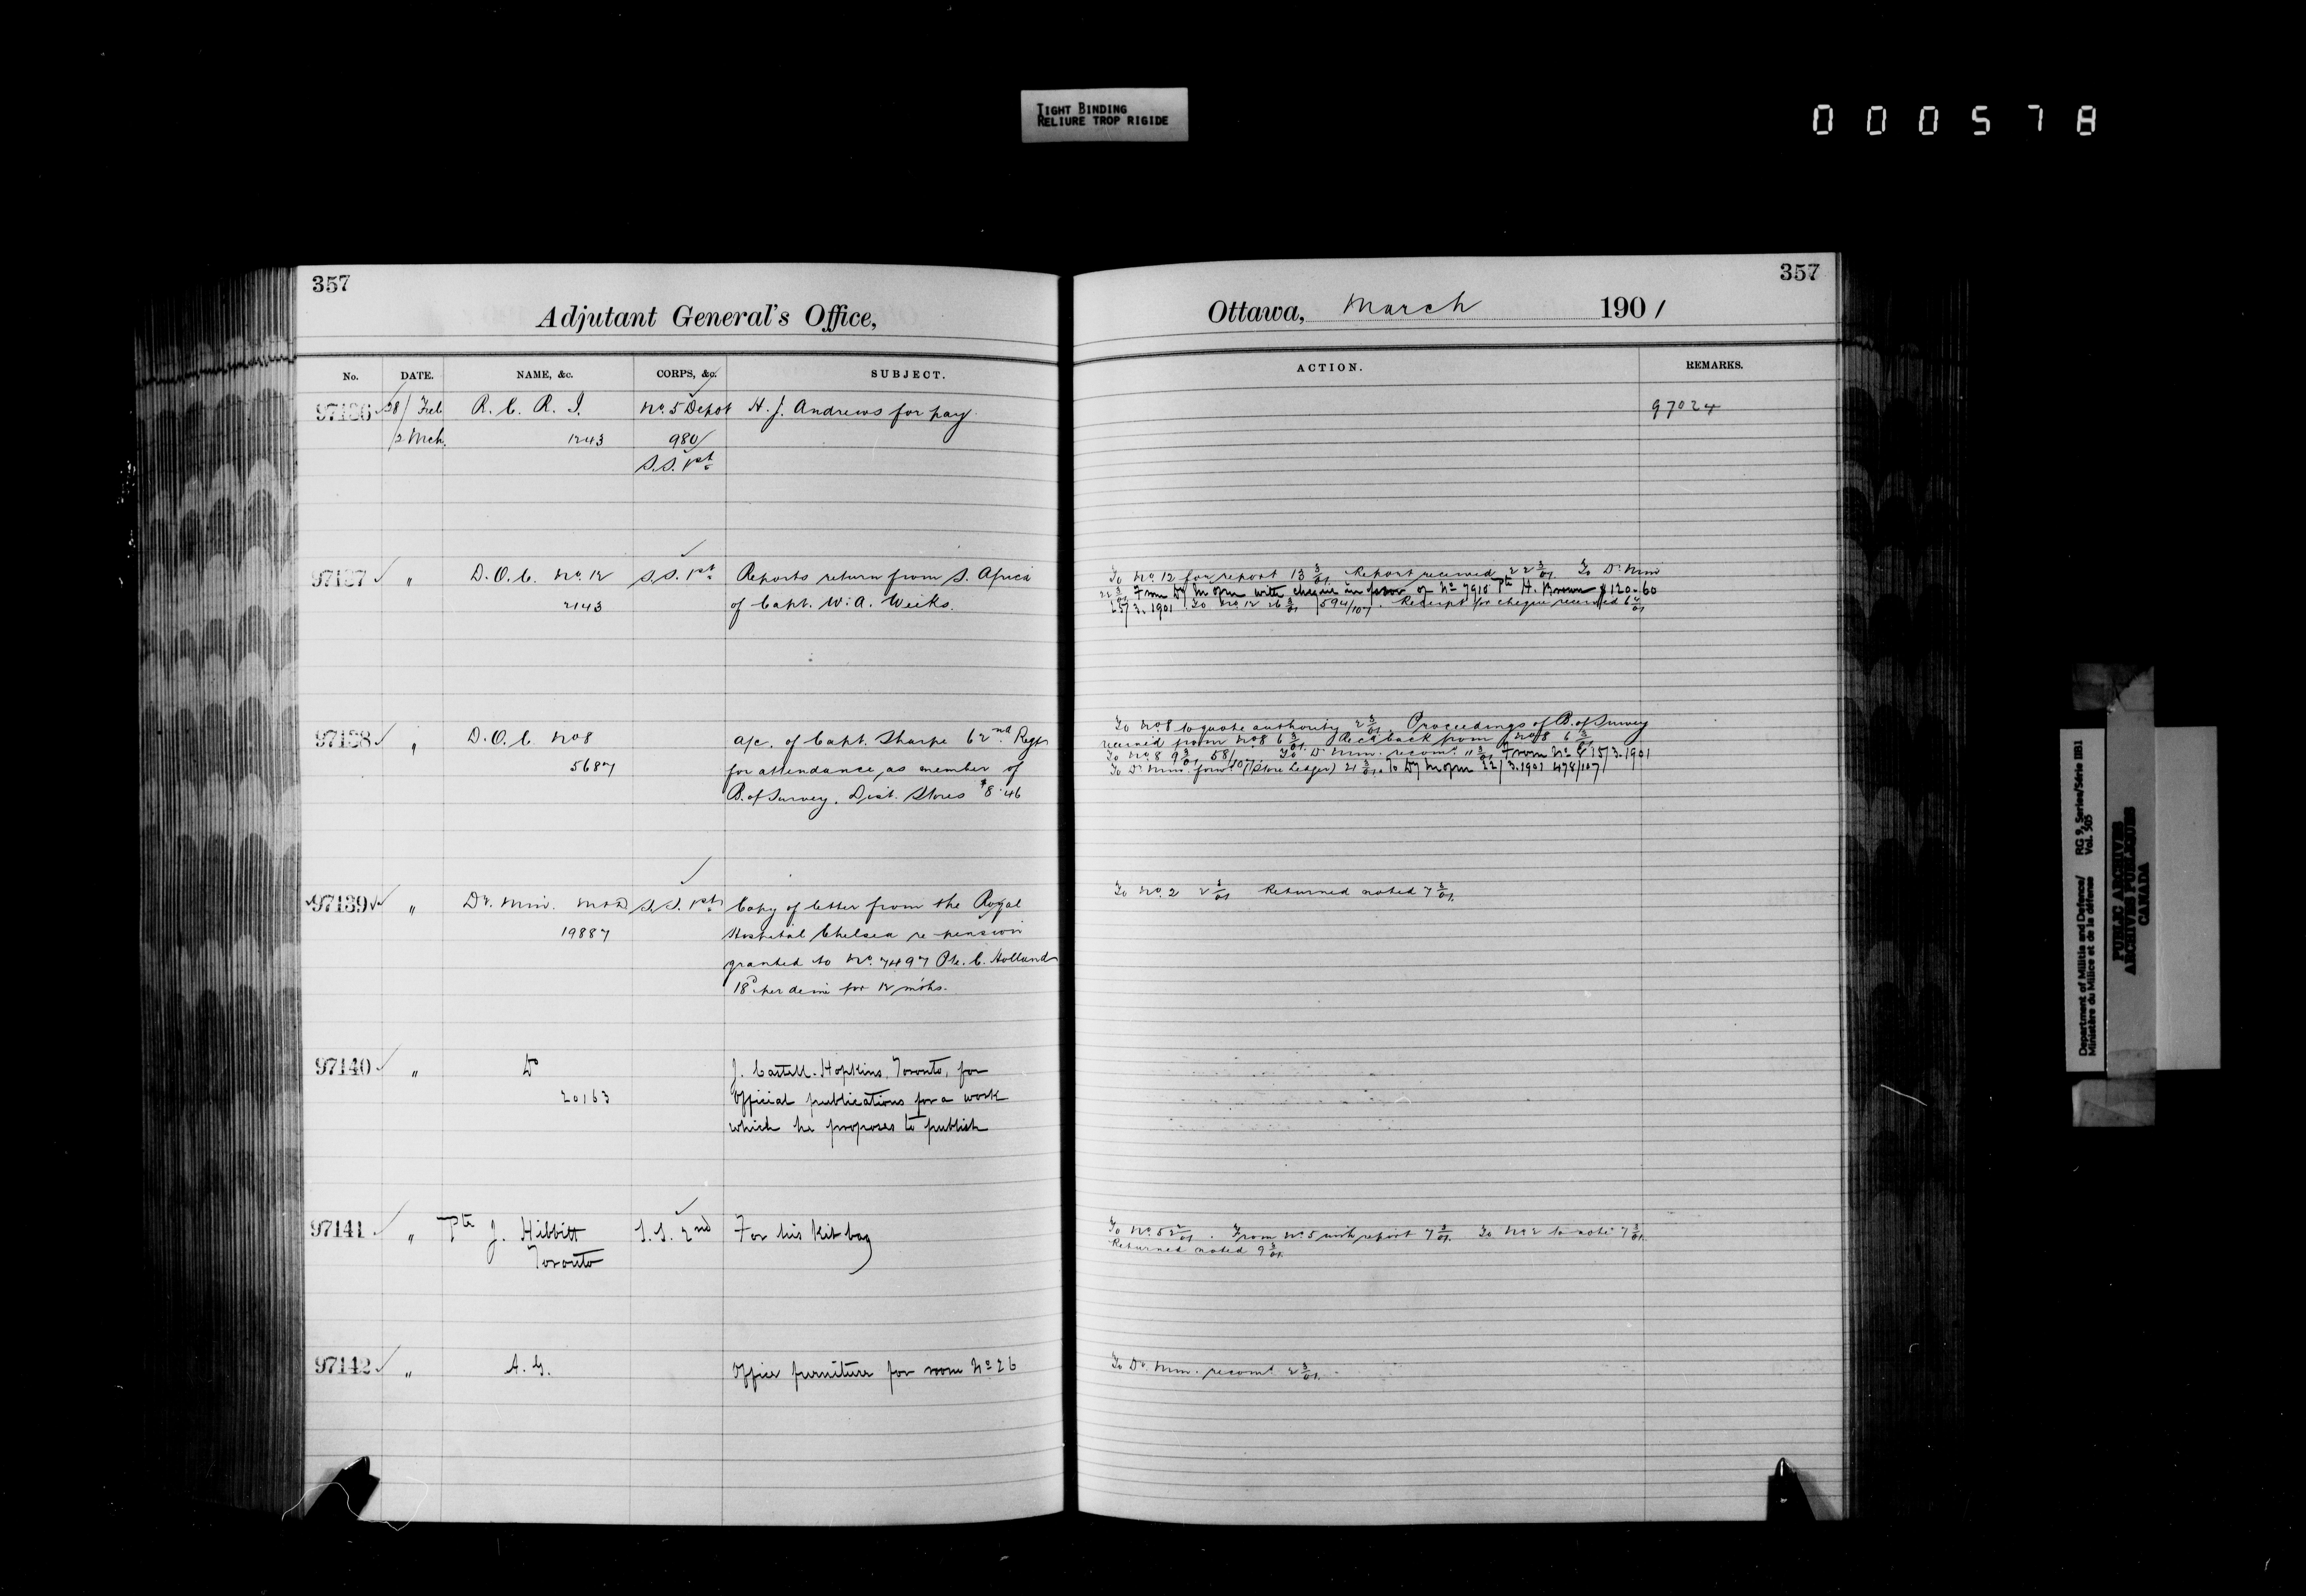 TIGHT BINDING
RELIURE TROP RIGIDE
000578
357
Adjutant General's Office,
No. DATE. NAME, &c. CORPS, &c. SUBJECT.
97136 28/ Feb R. C. R. I. No. 5 Depot H. J. Andrews for pay
2 Mch. 1243 980
S.S. 1st
97137 " D.O.C. No. 12 S.S. 1st Reports return from S. Africa
2143 of Capt. W. A. Weeks.
97138 " D.O.C. No 8 a/c. of Capt. Sharpe 62nd Regt
5687 for attendance, as member of
B. of Survey, Dist. Stores $8.46
97139 " Dr. Min. M&D S.S. 1st Copy of letter from the Royal
19887 Hospital Chelsea re pension
granted to No. 7497 Pte. C. Holland
18d per deim for 12 mths.
97140 " Do J. Castell-Hopkins, Toronto, for
20163 Official publications for a work
which he proposes to publish
97141 " Pte J. Hibbitt S.S. 2nd For his kit bag
Toronto
97142 " A. G. Office furniture for room No 26
357
Ottawa, March 1901
ACTION. REMARKS.
97024
To No. 12 for report 13 3/01. Report received 22 3/01. To Dr. Min
22 3/01 From Dy M open with cheque in favor of No 7910 Pte H. Brown $120.60
25/3.1901 To No 12 26 3/01 594/107. Receipt for cheque received 6 4/01
To No. 8 to quote authority 2 3/01. Proceedings of B. of Survey
received from No 8 6 3/01. Recd back from No 8 6 3/01
To No 8 9 3/01 58/107 To Dr Min. recomd 11 3/01 From No 8 15/3.1901
To Dr Min. forwd (Store Ledger) 21 3/01. To Dy M open 22/3.1901 478/107
To No. 2 2 3/01 Returned noted 7 3/01.
To No. 5 2 3/01. From No. 5 with report 7 3/01. To No 2 to note 7 3/01.
Returned noted 9 3/01.
To Dr. Min. recomd 2 3/01.
Department of Militia and Defence/ RG 9, Series/Série IIB1
Ministère du Milice et de la défense Vol. 505
PUBLIC ARCHIVES
ARCHIVES PUBLIQUES
CANADA